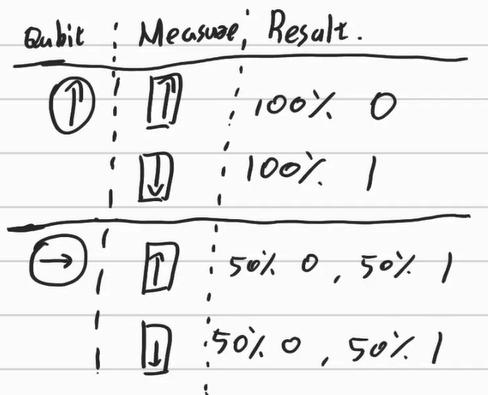 Qubit Measure Result.
↑ ↑ 100% 0
↓ 100% 1
→ ↑ 50% 0, 50% 1
↓ 50% 0, 50% 1